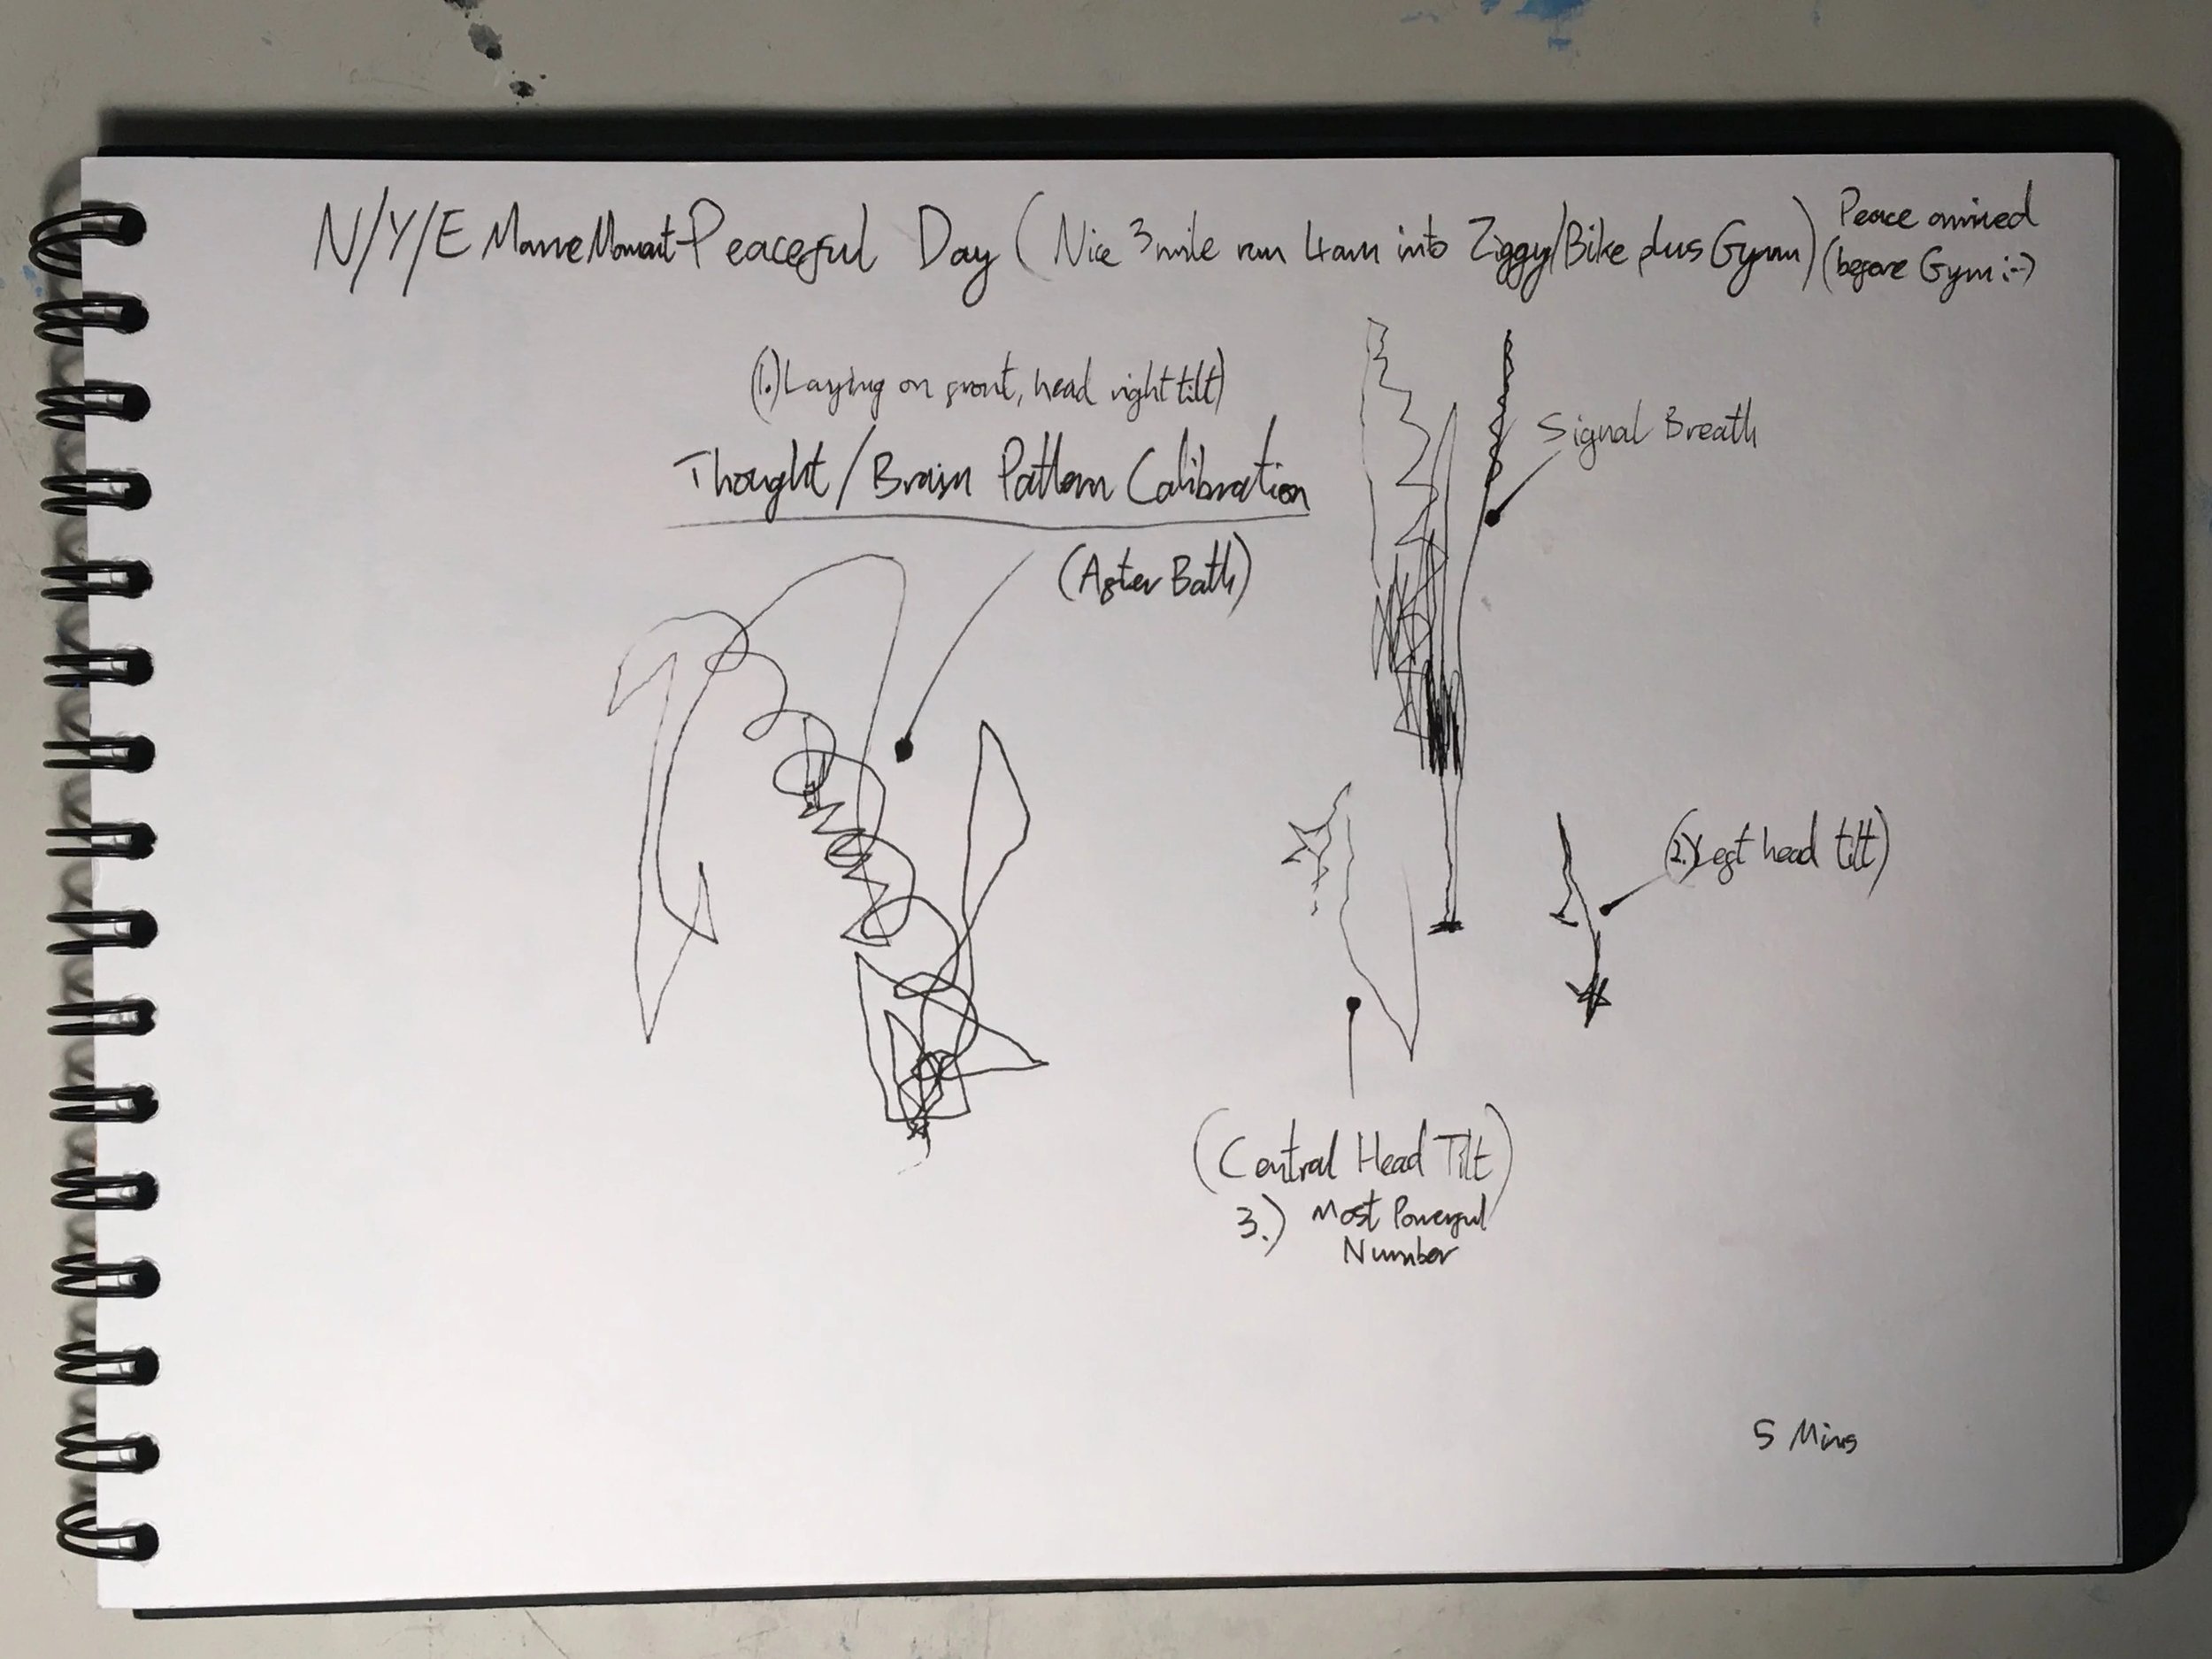 N/Y/E Mame Moment-Peaceful Day (Nice 3 mile run 4am into Ziggy/Bike plus Gym) Peace arrived
(before Gym :-)
(1.) Laying on front, head right tilt)
Signal Breath
Thought/Brain Pattern Calibration
(After Bath)
(2.) Left head tilt)
(Central Head Tilt)
3.) Most Powerful
Number
5 Mins